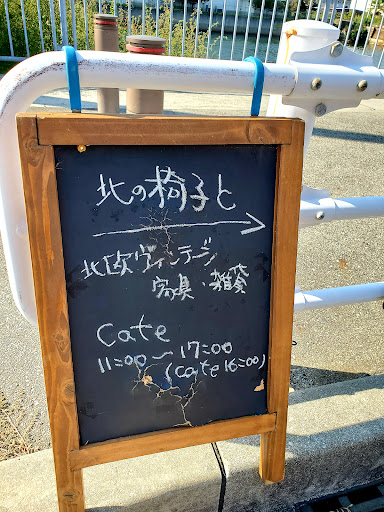 北の椅子と
北欧ヴィンテージ
家具・雑貨
Cafe
11:00〜17:00
(Cafe 16:00)